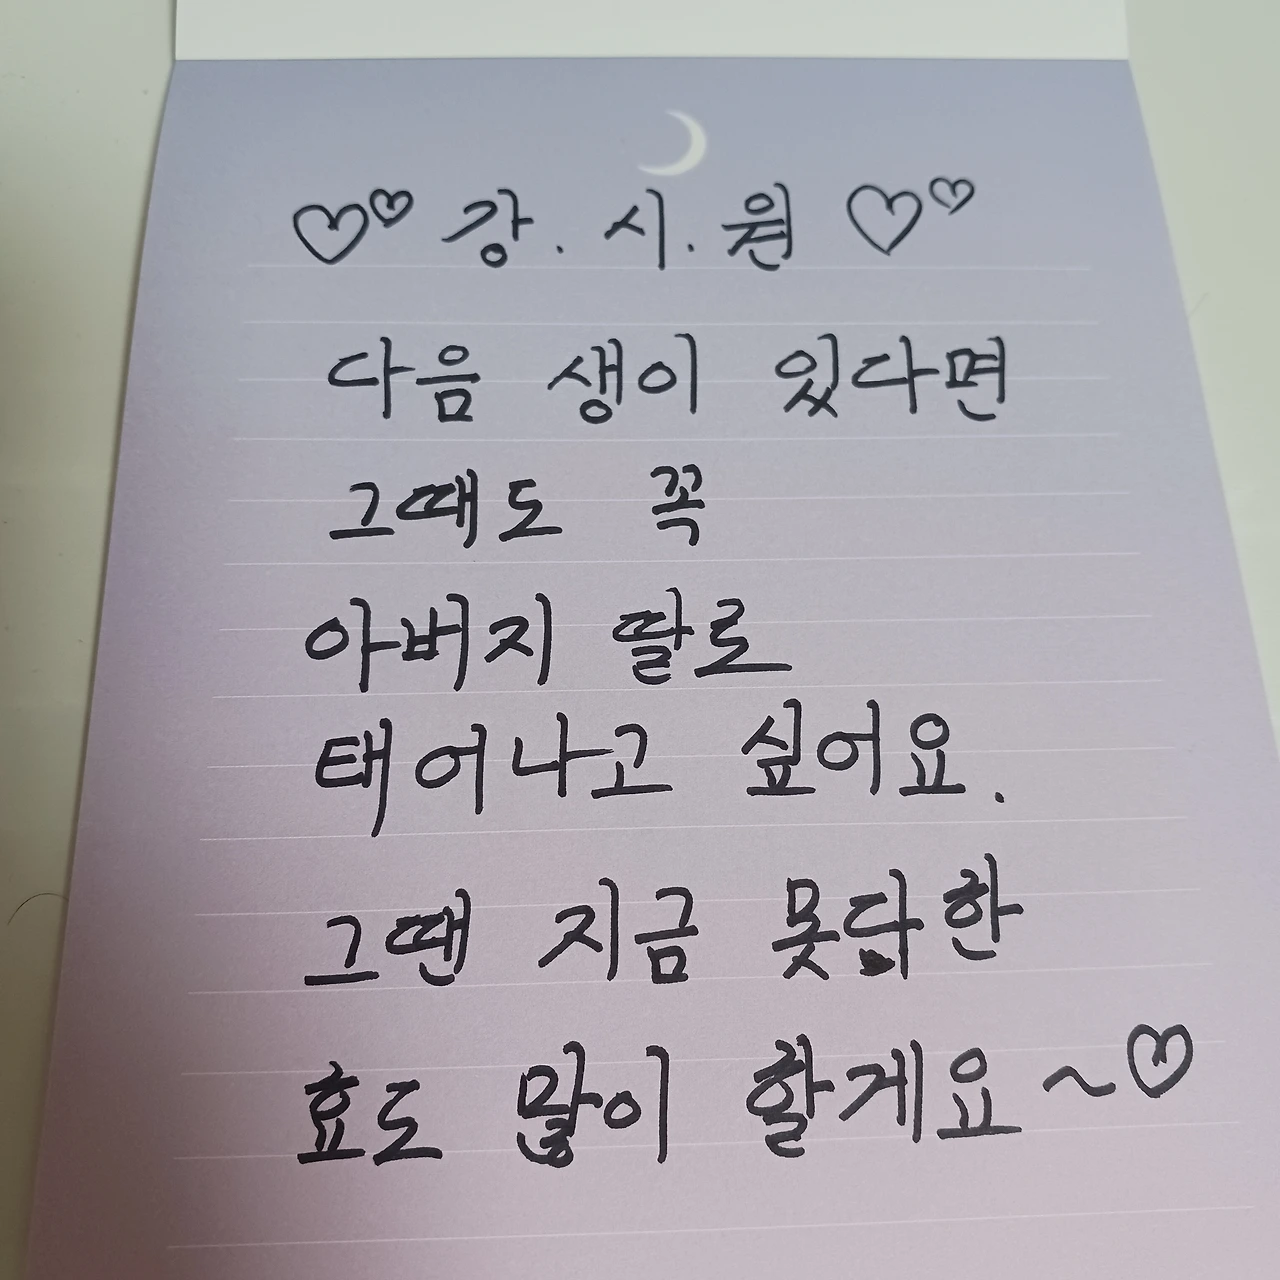 ♡♡ 강.시.원 ♡♡
다음 생이 있다면
그때도 꼭
아버지 딸로
태어나고 싶어요.
그땐 지금 못다한
효도 많이 할게요~♡